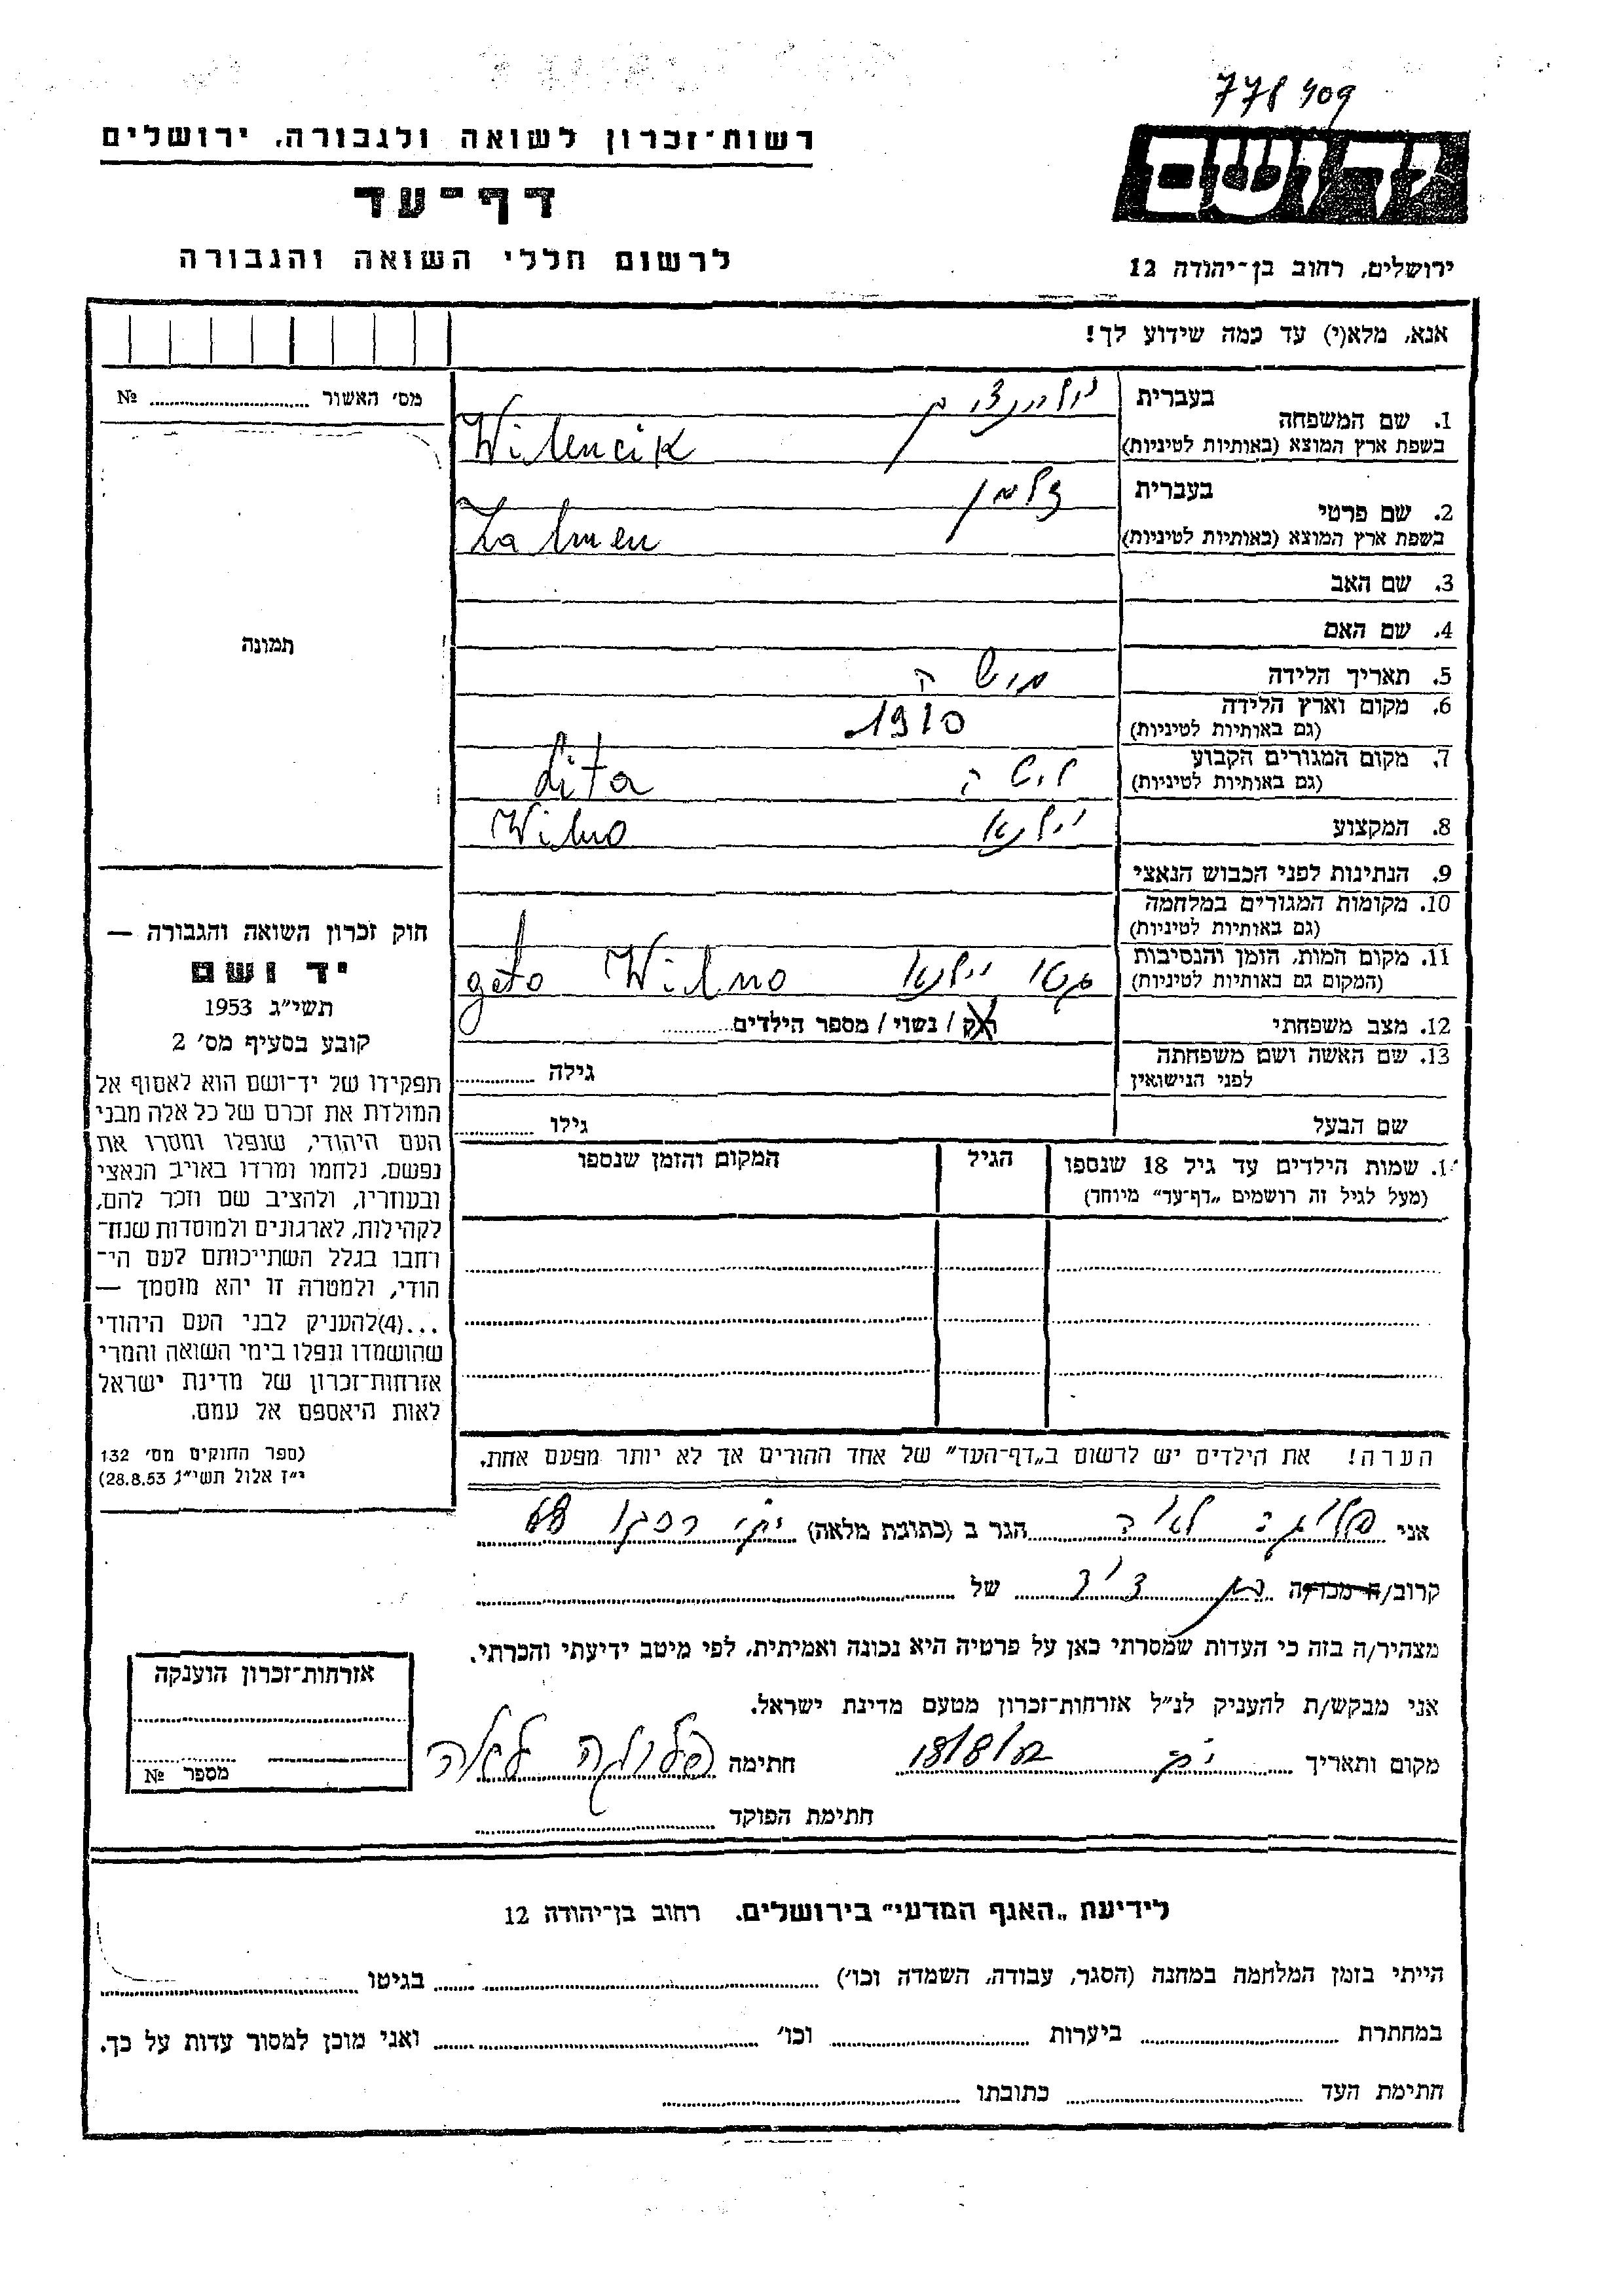 778409
יד ושם
רשות־זכרון לשואה ולגבורה, ירושלים
דף־עד
לרשום חללי השואה והגבורה
ירושלים, רחוב בן־יהודה 12
אנא, מלא(י) עד כמה שידוע לך!
מס׳ האשור № 
1. שם המשפחה בעברית
בשפת ארץ המוצא (באותיות לטיניות) Wilencik
2. שם פרטי בעברית זלמן
בשפת ארץ המוצא (באותיות לטיניות) Zalmen
3. שם האב
4. שם האם
5. תאריך הלידה
6. מקום וארץ הלידה 1910
(גם באותיות לטיניות)
7. מקום המגורים הקבוע Lita
(גם באותיות לטיניות)
8. המקצוע וילנא Wilno
9. הנתינות לפני הכבוש הנאצי
10. מקומות המגורים במלחמה
(גם באותיות לטיניות)
11. מקום המות, הזמן והנסיבות גטו וילנא geto Wilno
(המקום גם באותיות לטיניות)
12. מצב משפחתי רוק / נשוי / מספר הילדים
13. שם האשה ושם משפחתה
לפני הנישואין גילה
שם הבעל גילו
תמונה
חוק זכרון השואה והגבורה —
יד ושם
תשי״ג 1953
קובע בסעיף מס׳ 2
תפקידו של יד־ושם הוא לאסוף אל
המולדת את זכרם של כל אלה מבני
העם היהודי, שנפלו ומסרו את
נפשם, נלחמו ומרדו באויב הנאצי
ובעוזריו, ולהציב שם וזכר להם,
לקהילות, לארגונים ולמוסדות שנח־
רחבו בגלל השתייכותם לעם הי־
הודי, ולמטרה זו יהא מוסמך —
...(4)להעניק לבני העם היהודי
שהושמדו ונפלו בימי השואה והמרי
אזרחות־זכרון של מדינת ישראל
לאות היאספם אל עמם.
(ספר החוקים מס׳ 132
י״ז אלול תשי״ג 28.8.53)
1. שמות הילדים עד גיל 18 שנספו הגיל המקום והזמן שנספו
(מעל לגיל זה רושמים „דף־עד״ מיוחד)
הערה! את הילדים יש לרשום ב„דף־העד״ של אחד ההורים אך לא יותר מפעם אחת.
אני לאה הגר ב (כתובת מלאה) 68
קרוב/ה מכר/ה בן דוד של
מצהיר/ה בזה כי העדות שמסרתי כאן על פרטיה היא נכונה ואמיתית, לפי מיטב ידיעתי והכרתי.
אני מבקש/ת להעניק לנ״ל אזרחות־זכרון מטעם מדינת ישראל.
מקום ותאריך חתימה לאה
חתימת הפוקד
אזרחות־זכרון הוענקה
מספר №
לידיעת „האגף המדעי״ בירושלים, רחוב בן־יהודה 12
הייתי בזמן המלחמה במחנה (הסגר, עבודה, השמדה וכו׳) בגיטו
במחתרת ביערות וכו׳ ואני מוכן למסור עדות על כך.
חתימת העד כתובתו